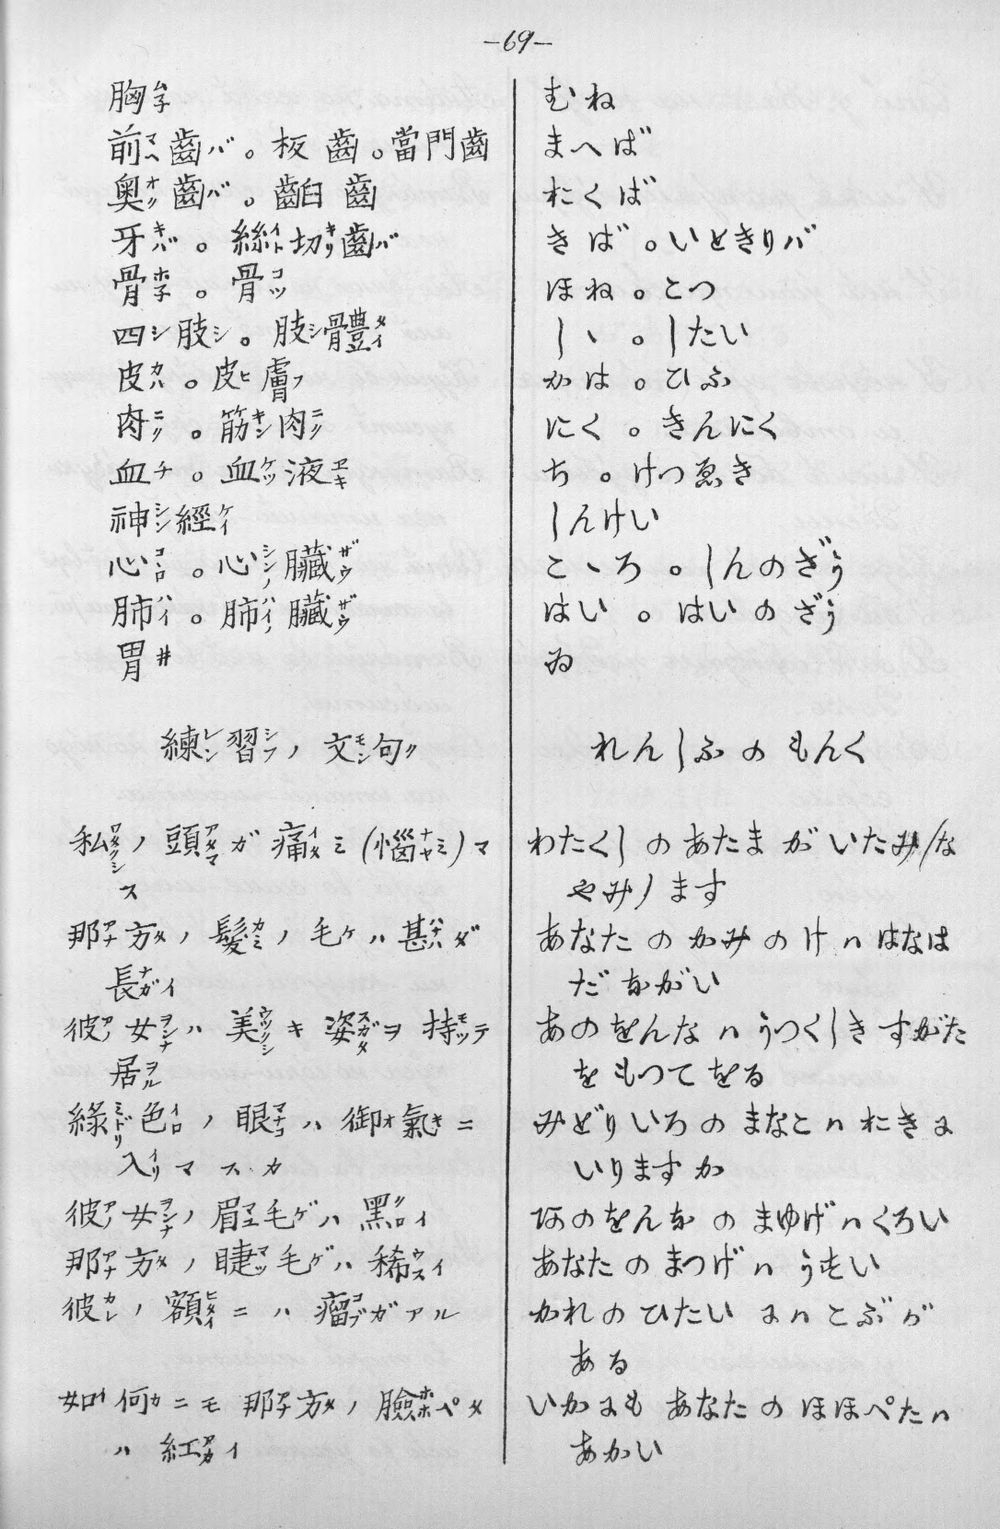 —69—
胸ムネ
むね
前マヘ齒バ。板齒。當門齒
まへば
奥オク齒バ。齨齒
おくば
牙キバ。絲イト切キリ齒バ
きば。いときりバ
骨ホネ。骨コツ
ほね。こつ
四シ肢シ。肢シ體タイ
しゝ。したい
皮カハ。皮ヒ膚フ
かは。ひふ
肉ニク。筋キン肉ニク
にく。きんにく
血チ。血ケツ液ヱキ
ち。けつゑき
神シン經ケイ
しんけい
心コヽロ。心シンノ臟ザウ
こゝろ。しんのざう
肺ハイ。肺ハイノ臟ザウ
はい。はいのざう
胃ヰ
ゐ
練レン習シフノ文モン句ク
れんしふのもんく
私ワタクシノ頭アタマガ痛イタミ(惱ナヤミ)マ
ス
わたくしのあたまがいたみ(な
やみ)ます
那アナ方タノ髮カミノ毛ケハ甚ハナハダ
長ナガイ
あなたのかみのけハはなは
だながい
彼アノ女ヲンナハ美ウツクシキ姿スガタヲ持モツテ
居ヲル
あのをんなハうつくしきすがた
をもつてをる
綠ミドリ色イロノ眼マナコハ御オ氣キニ
入イリマスカ
みどりいろのまなこハおきに
いりますか
彼アノ女ヲンナノ眉マユ毛ゲハ黑クロイ
あのをんなのまゆげハくろい
那アナ方タノ睫マツ毛ゲハ稀ウスイ
あなたのまつげハうすい
彼カレノ額ヒタイニハ瘤コブガアル
かれのひたいにハこぶが
ある
如イ何カニモ那アナ方タノ臉ホホペタ
ハ紅アカイ
いかにもあなたのほほぺたハ
あかい